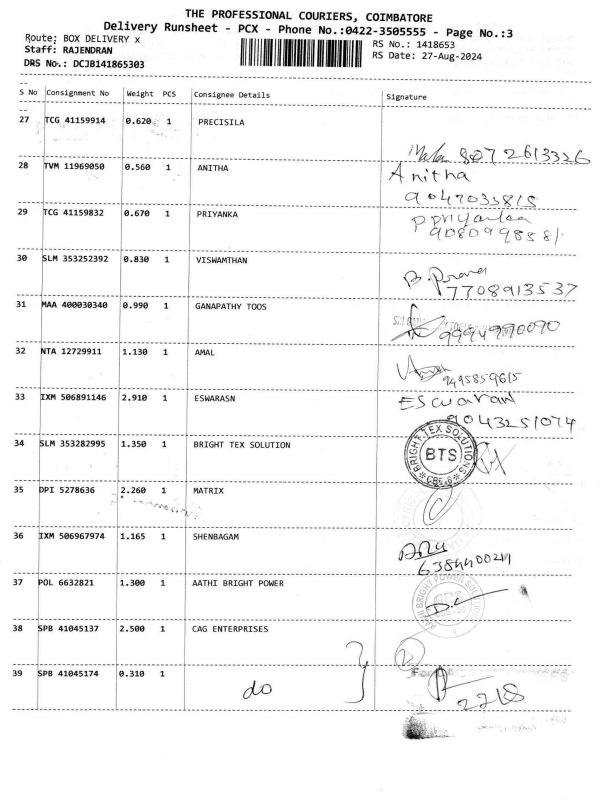 THE PROFESSIONAL COURIERS, COIMBATORE
Delivery Runsheet - PCX - Phone No.:0422-3505555 - Page No.:3
Route; BOX DELIVERY x
Staff: RAJENDRAN
DRS No.: DCJB141865303
RS No.: 1418653
RS Date: 27-Aug-2024
S No Consignment No Weight PCS Consignee Details Signature
27 TCG 41159914 0.620 1 PRECISILA
8072613326
28 TVM 11969050 0.560 1 ANITHA
Anitha
9047035815
29 TCG 41159832 0.670 1 PRIYANKA
P priyankaa
9080998581
30 SLM 353252392 0.830 1 VISWAMTHAN
7708913537
31 MAA 400030340 0.990 1 GANAPATHY TOOS
9994990090
32 NTA 12729911 1.130 1 AMAL
9495859615
33 IXM 506891146 2.910 1 ESWARASN
Eswaran
9043251074
34 SLM 353282995 1.350 1 BRIGHT TEX SOLUTION
BRIGHT TEX SOLUTIONS
BTS
CBE-6
35 DPI 5278636 2.260 1 MATRIX
36 IXM 506967974 1.165 1 SHENBAGAM
37 POL 6632821 1.300 1 AATHI BRIGHT POWER
38 SPB 41045137 2.500 1 CAG ENTERPRISES
39 SPB 41045174 0.310 1
do
2218